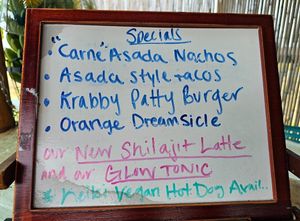 Specials
• "Carne" Asada Nachos
• Asada Style tacos
• Krabby Patty Burger
• Orange Dreamsicle
our New Shilajit Latte
and our GLOW TONIC
* Vegan Hot Dog Avail..